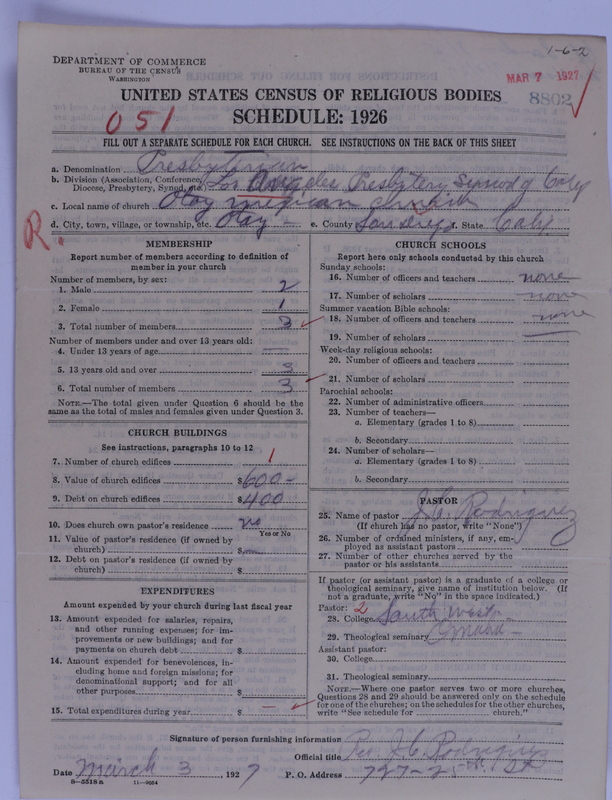 1-6-2
DEPARTMENT OF COMMERCE
BUREAU OF THE CENSUS
WASHINGTON
MAR 7 1927
8802
UNITED STATES CENSUS OF RELIGIOUS BODIES
SCHEDULE: 1926
051
FILL OUT A SEPARATE SCHEDULE FOR EACH CHURCH. SEE INSTRUCTIONS ON THE BACK OF THIS SHEET
a. Denomination Presbyterian
b. Division (Association, Conference, Diocese, Presbytery, Synod, etc.) Los Angeles Presbytery Synod of Caly
c. Local name of church Otay mexican church
d. City, town, village, or township, etc. Otay e. County San Diego f. State Caly
R.
MEMBERSHIP
Report number of members according to definition of
member in your church
Number of members, by sex:
1. Male 2
2. Female 1
3. Total number of members 3
Number of members under and over 13 years old:
4. Under 13 years of age —
5. 13 years old and over 3
6. Total number of members 3
NOTE.—The total given under Question 6 should be
same as the total of males and females given under Question 3.
CHURCH BUILDINGS
See instructions, paragraphs 10 to 12
7. Number of church edifices 1
8. Value of church edifices $600-
9. Debt on church edifices $400
10. Does church own pastor's residence no
Yes or No
11. Value of pastor's residence (if owned by
church) $
12. Debt on pastor's residence (if owned by
church) $
EXPENDITURES
Amount expended by your church during last fiscal year
13. Amount expended for salaries, repairs,
and other running expenses; for im-
provements or new buildings; and for
payments on church debt $
14. Amount expended for benevolences, in-
cluding home and foreign missions; for
denominational support; and for all
other purposes $
15. Total expenditures during year $ —
CHURCH SCHOOLS
Report here only schools conducted by this church
Sunday schools:
16. Number of officers and teachers none
17. Number of scholars none
Summer vacation Bible schools:
18. Number of officers and teachers none
19. Number of scholars
Week-day religious schools:
20. Number of officers and teachers
21. Number of scholars
Parochial schools:
22. Number of administrative officers
23. Number of teachers—
a. Elementary (grades 1 to 8)
b. Secondary
24. Number of scholars—
a. Elementary (grades 1 to 8)
b. Secondary
PASTOR
25. Name of pastor J.C. Rodriguez
(If church has no pastor, write "None")
26. Number of ordained ministers, if any, em-
ployed as assistant pastors
27. Number of other churches served by the
pastor or his assistants
If pastor (or assistant pastor) is a graduate of a college or
theological seminary, give name of institution below. (If
not a graduate, write "No" in the space indicated.)
Pastor: 2
28. College South West
29. Theological seminary
Assistant pastor:
30. College
31. Theological seminary
NOTE.—Where one pastor serves two or more churches,
Questions 28 and 29 should be answered only on the schedule
for one of the churches; on the schedules for the other churches,
write "See schedule for church."
Signature of person furnishing information Rev. J.C. Rodriguez
Official title
Date March 3 1927 P. O. Address 727-25th St
8-5518a 11-9054